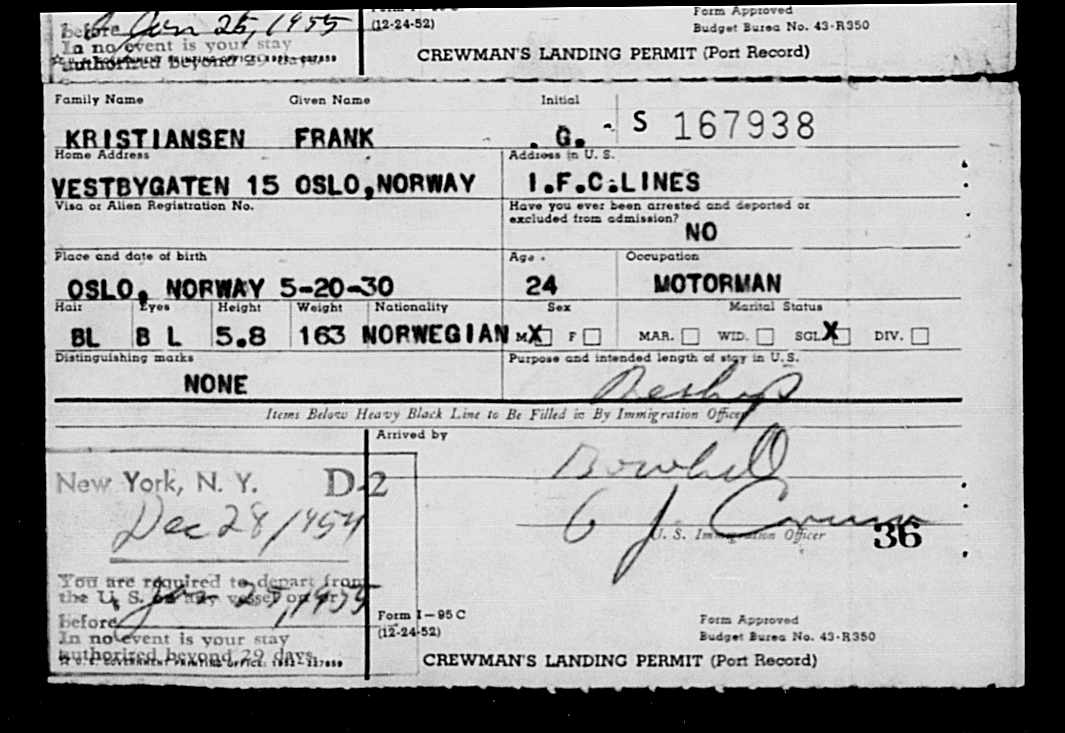 Before Jan 25, 1955
In no event is your stay
authorized beyond 29
Form Approved
(12-24-52)
Budget Burea No. 43-R350
CREWMAN'S LANDING PERMIT (Port Record)
Family Name Given Name Initial
KRISTIANSEN FRANK G. S 167938
Home Address Address in U. S.
VESTBYGATEN 15 OSLO,NORWAY I.F.C.LINES
Visa or Alien Registration No. Have you ever been arrested and deported or
excluded from admission?
NO
Place and date of birth Age Occupation
OSLO, NORWAY 5-20-30 24 MOTORMAN
Hair Eyes Height Weight Nationality Sex Marital Status
BL B L 5.8 163 NORWEGIAN M X F MAR. WID. SGL X DIV.
Distinguishing marks Purpose and intended length of stay in U.S.
NONE Reship
Items Below Heavy Black Line to Be Filled in By Immigration Officer
Arrived by
New York, N. Y. D-2
Dec 28/1954
U. S. Immigration Officer 36
You are required to depart from
the U. S. on any vessel on or
before Jan 25, 1955
In no event is your stay
authorized beyond 29 days.
Form I-95 C
(12-24-52)
Form Approved
Budget Burea No. 43-R350
CREWMAN'S LANDING PERMIT (Port Record)